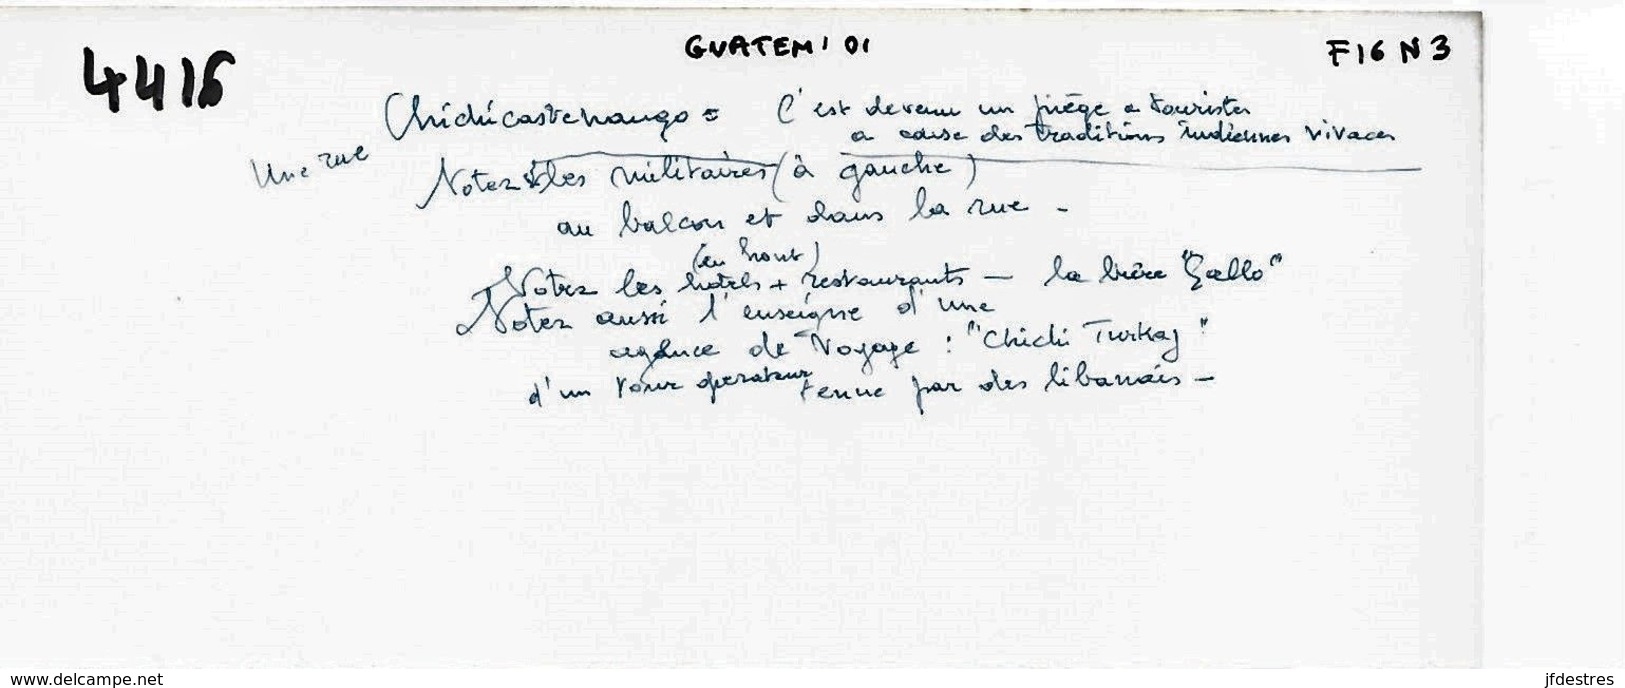 4416
GUATEM' 01
F16 N 3
Chichicastenango = C'est devenu un piège a touristes
a cause des traditions indiennes vivaces
Une rue
Notez les militaires (à gauche)
au balcon et dans la rue -
(en haut)
Notez les hotels + restaurants - la bière "Gallo"
Notez aussi l'enseigne d'une
agence de Voyage : "Chichi Turkaj"
d'un tour operateur tenue par des libanais -
www.delcampe.net
jfdestres